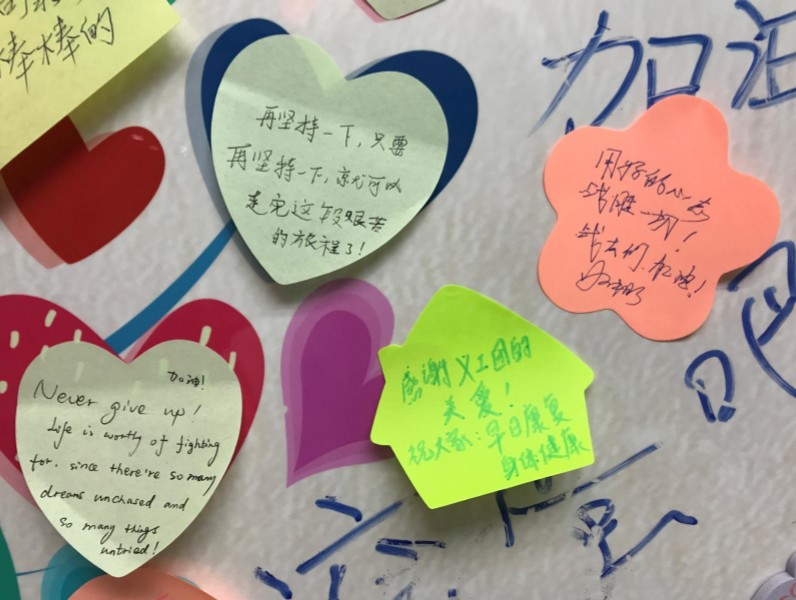 棒棒的
加油
再坚持一下，只要
再坚持一下，就可以
走完这段艰苦
的旅程了！
用好的心态
战胜一切！
战友们，加油！
吧
加油！
Never give up!
Life is worthy of fighting
for, since there're so many
dreams unchased and
so many things
untried!
感谢义工团的
关爱！
祝大家：早日康复
身体健康